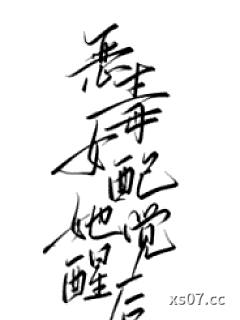 恶毒女配她觉醒后
xs07.cc